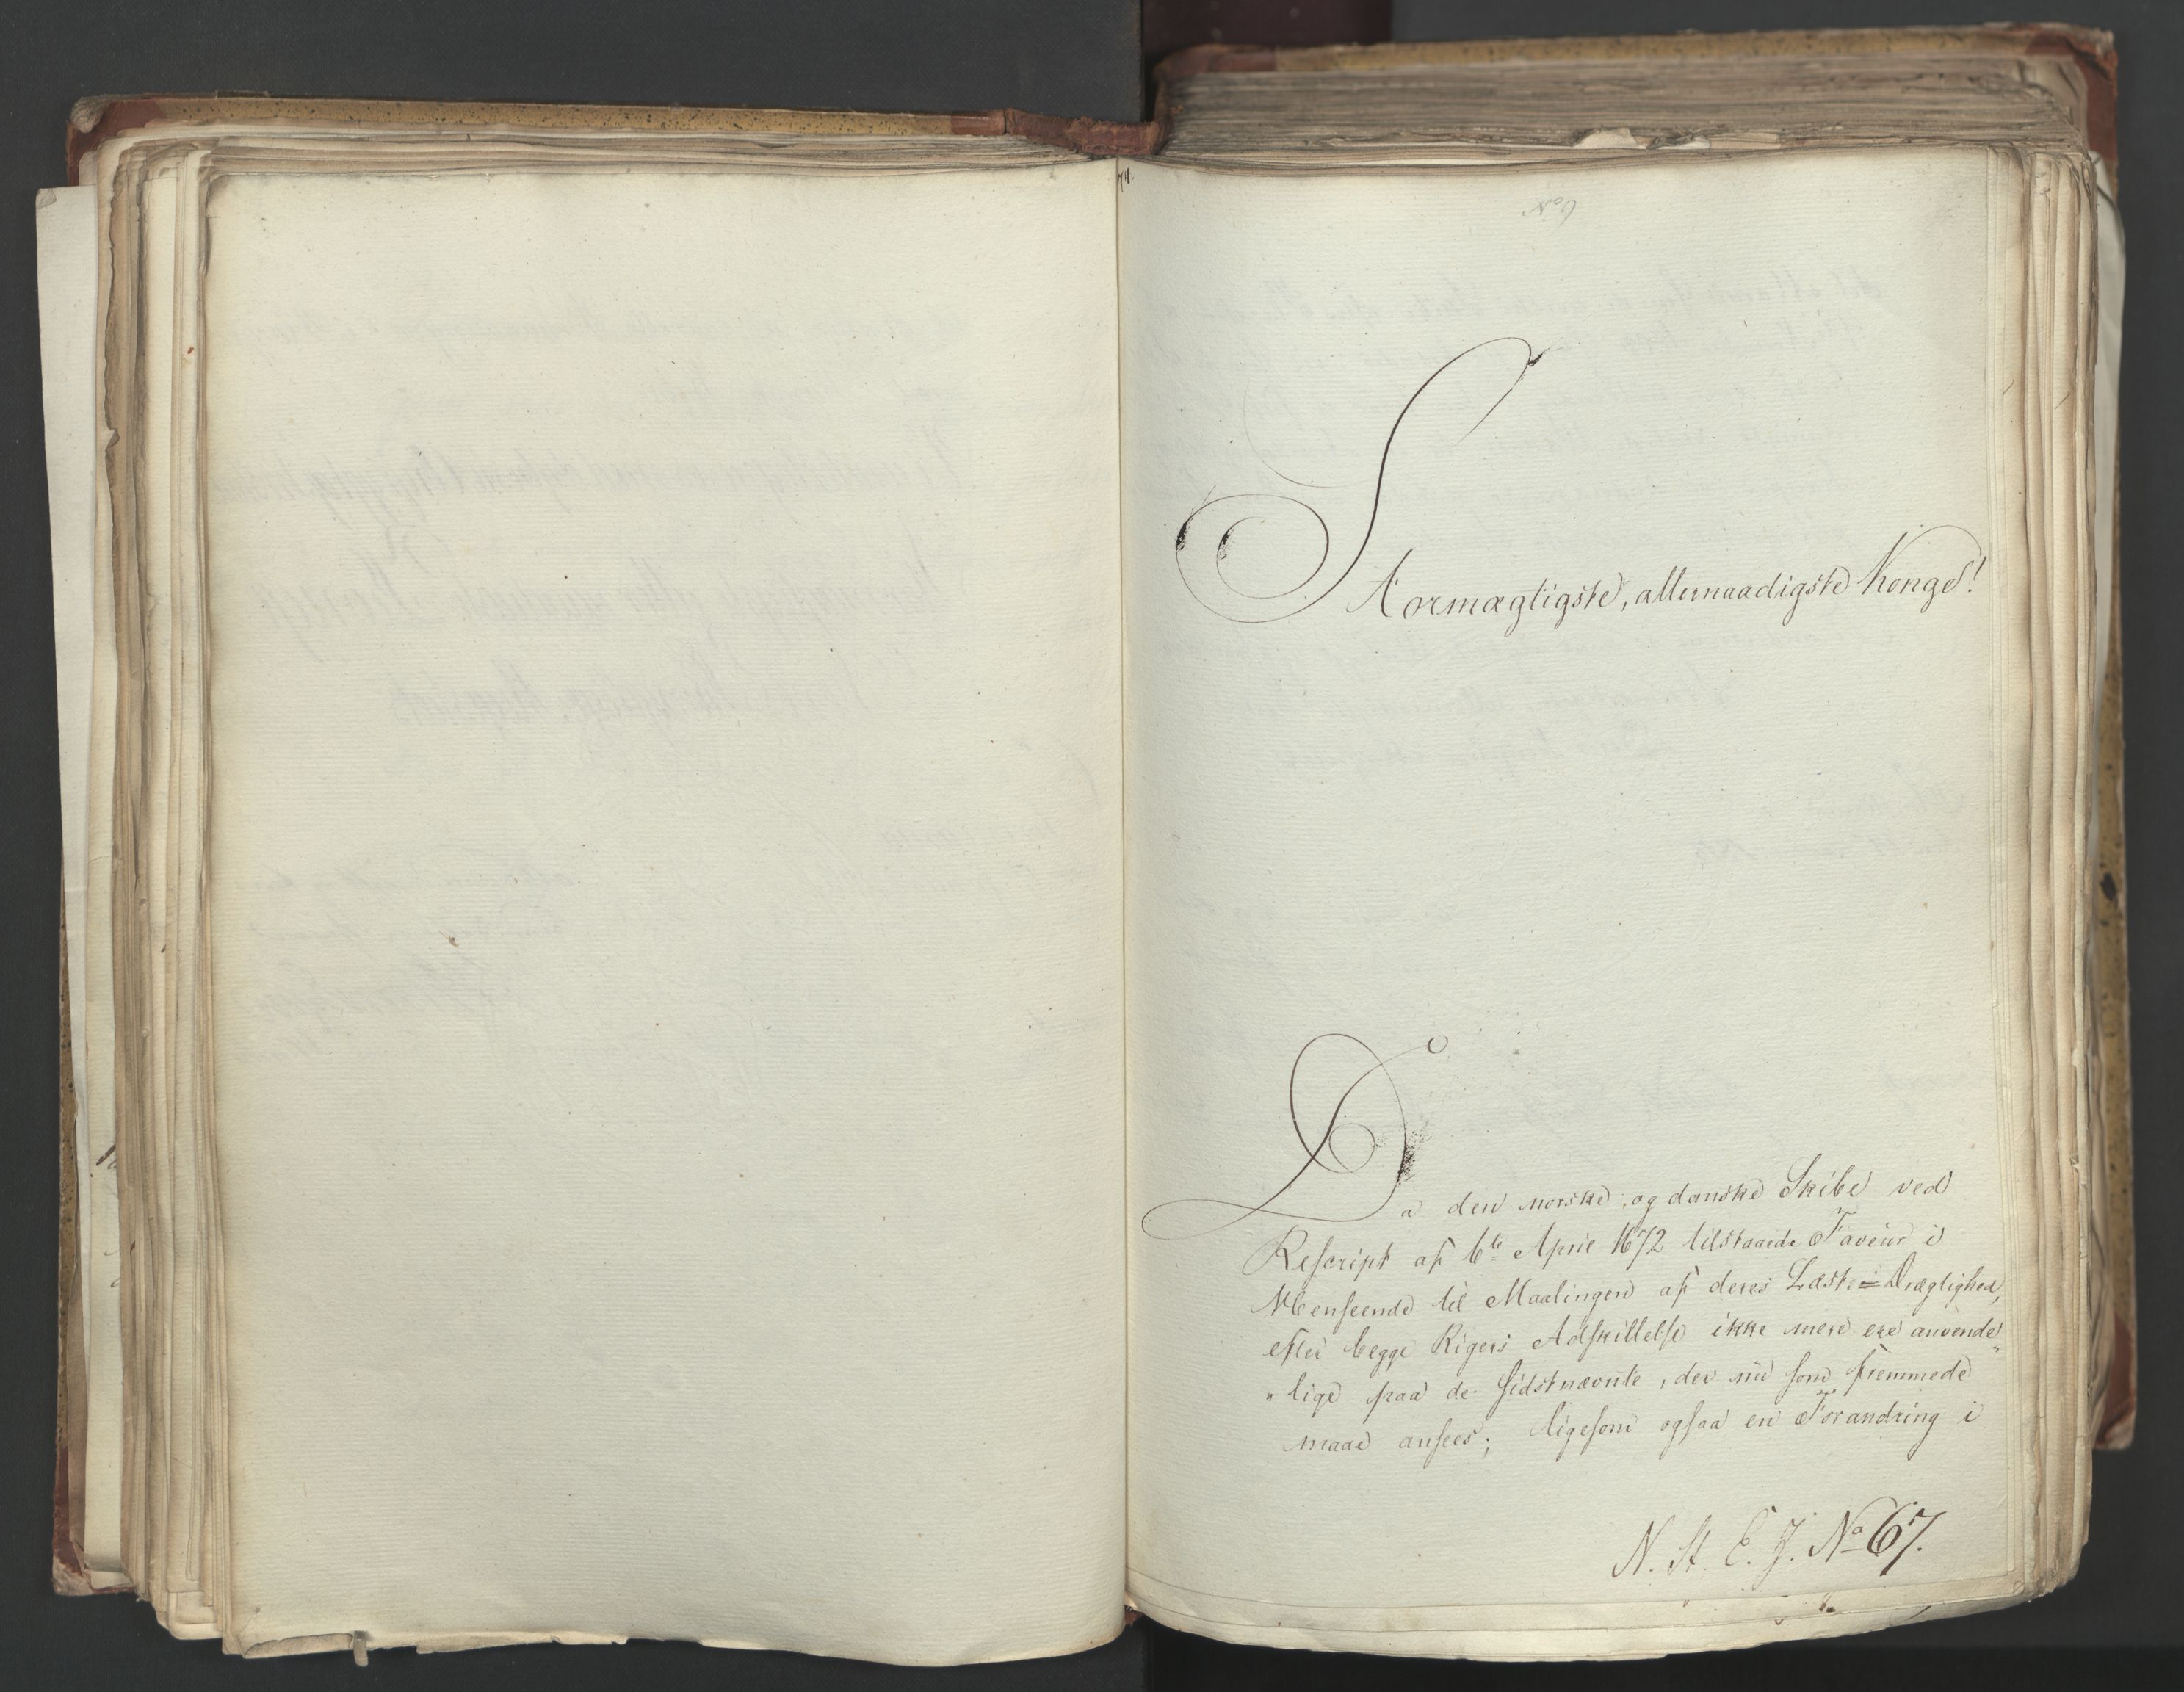 Stormægtigste, allernaadigste Konge!
Da den norske og danske Skibe ved
Rescript af 6te April 1672 tilstaaede Faveur i
Henseende til Maalingen af deres Læste-Drægtighed,
efter begge Rigers Adskillelse ikke mere ere anvende„
„lige paa de sidstnævnte, der nu som fremmede
maae ansees; ligesom ogsaa en Forandring i
N. St. E. J. No 67.